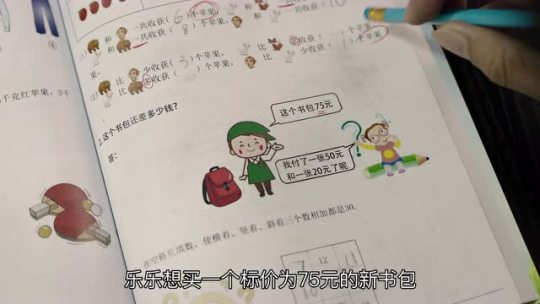 一共收获( 6 )个苹果,
和 一共收获
和 一共收获( 8 )个苹果,
(1) 比 少收获( 3 )个苹果,
(2) 比 多收获( )个苹果,
千克红苹果,3千
这个书包还差多少钱?
答:
这个书包75元
我付了一张50元
和一张20元了呢
在空格里填数,使横着、竖着、斜着三个数相加都是30。
7 12 11
乐乐想买一个标价为75元的新书包